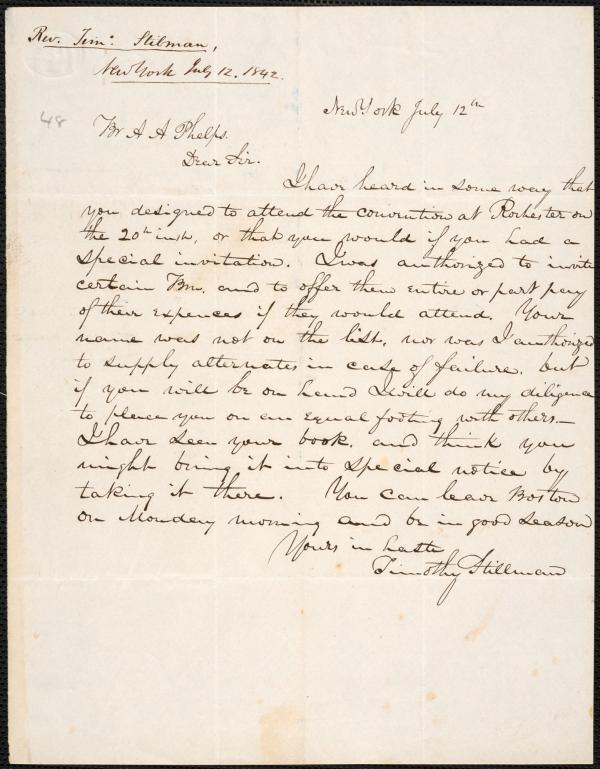 Rev. Timo. Stilman,
New York July 12. 1842.
48
New York July 12th
Br A A Phelps.
Dear Sir.
I have heard in some way that
you designed to attend the convention at Rochester on
the 20th inst, or that you would if you had a
special invitation. I was authorized to invite
certain Brn. and to offer them entire or part pay
of their expences if they would attend. Your
name was not on the list, nor was I authorized
to supply alternates in case of failure. but
if you will be on hand I will do my diligence
to place you on an equal footing with others—
I have seen your book. and think you
might bring it into special notice by
taking it there. You can leave Boston
on Monday morning and be in good season
Yours in haste
Timothy Stillman